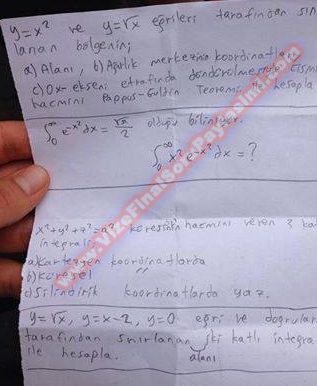 y=x² ve y=√x eğrileri tarafından sın
lanan bölgenin;
a) Alanı, b) Ağırlık merkezinin koordinatları
c) Ox-ekseni etrafında döndürülmesiyle cism
hacmini Pappus-Guldin Teoremi ile hesapla
∫₀^∞ e^{-x²}dx = √π/2 olduğu biliniyor.
∫₀^∞ x² e^{-x²}dx = ?
x²+y²+z²=a² küresinin hacmini veren 3 ka
integrali;
a) Kartezyen koordinatlarda
b) Küresel "
c) Silindirik koordinatlarda yaz.
y=√x, y=x-2, y=0 eğri ve doğrular
tarafından sınırlanan iki katlı integra
alanı
ile hesapla.
www.VizeFinalSoruPaylasimi.com